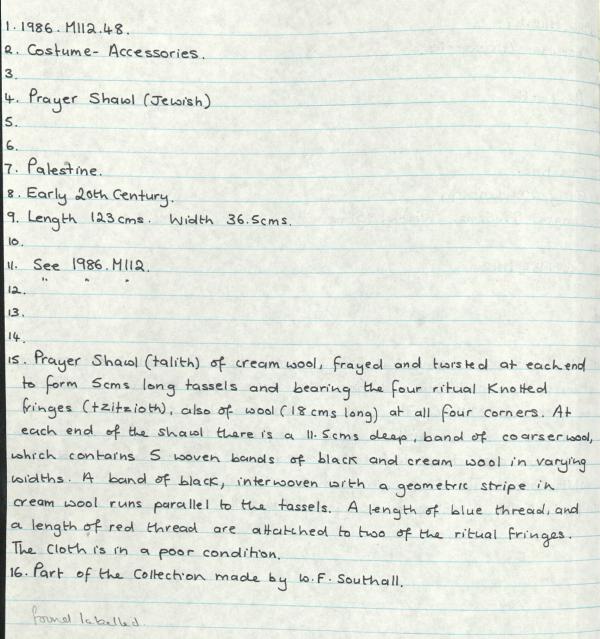 1. 1986. M112.48.
2. Costume- Accessories.
3.
4. Prayer Shawl (Jewish)
5.
6.
7. Palestine.
8. Early 20th Century.
9. Length 123cms. Width 36.5cms.
10.
11. See 1986.M112.
" " "
12.
13.
14.
15. Prayer Shawl (talith) of cream wool, frayed and twisted at each end
to form 5cms long tassels and bearing the four ritual Knotted
fringes (tzitzioth), also of wool (18cms long) at all four corners. At
each end of the shawl there is a 11.5cms deep, band of coarser wool,
which contains 5 woven bands of black and cream wool in varying
widths. A band of black, interwoven with a geometric stripe in
cream wool runs parallel to the tassels. A length of blue thread, and
a length of red thread are attatched to two of the ritual fringes.
The cloth is in a poor condition.
16. Part of the Collection made by W.F. Southall.
found labelled.